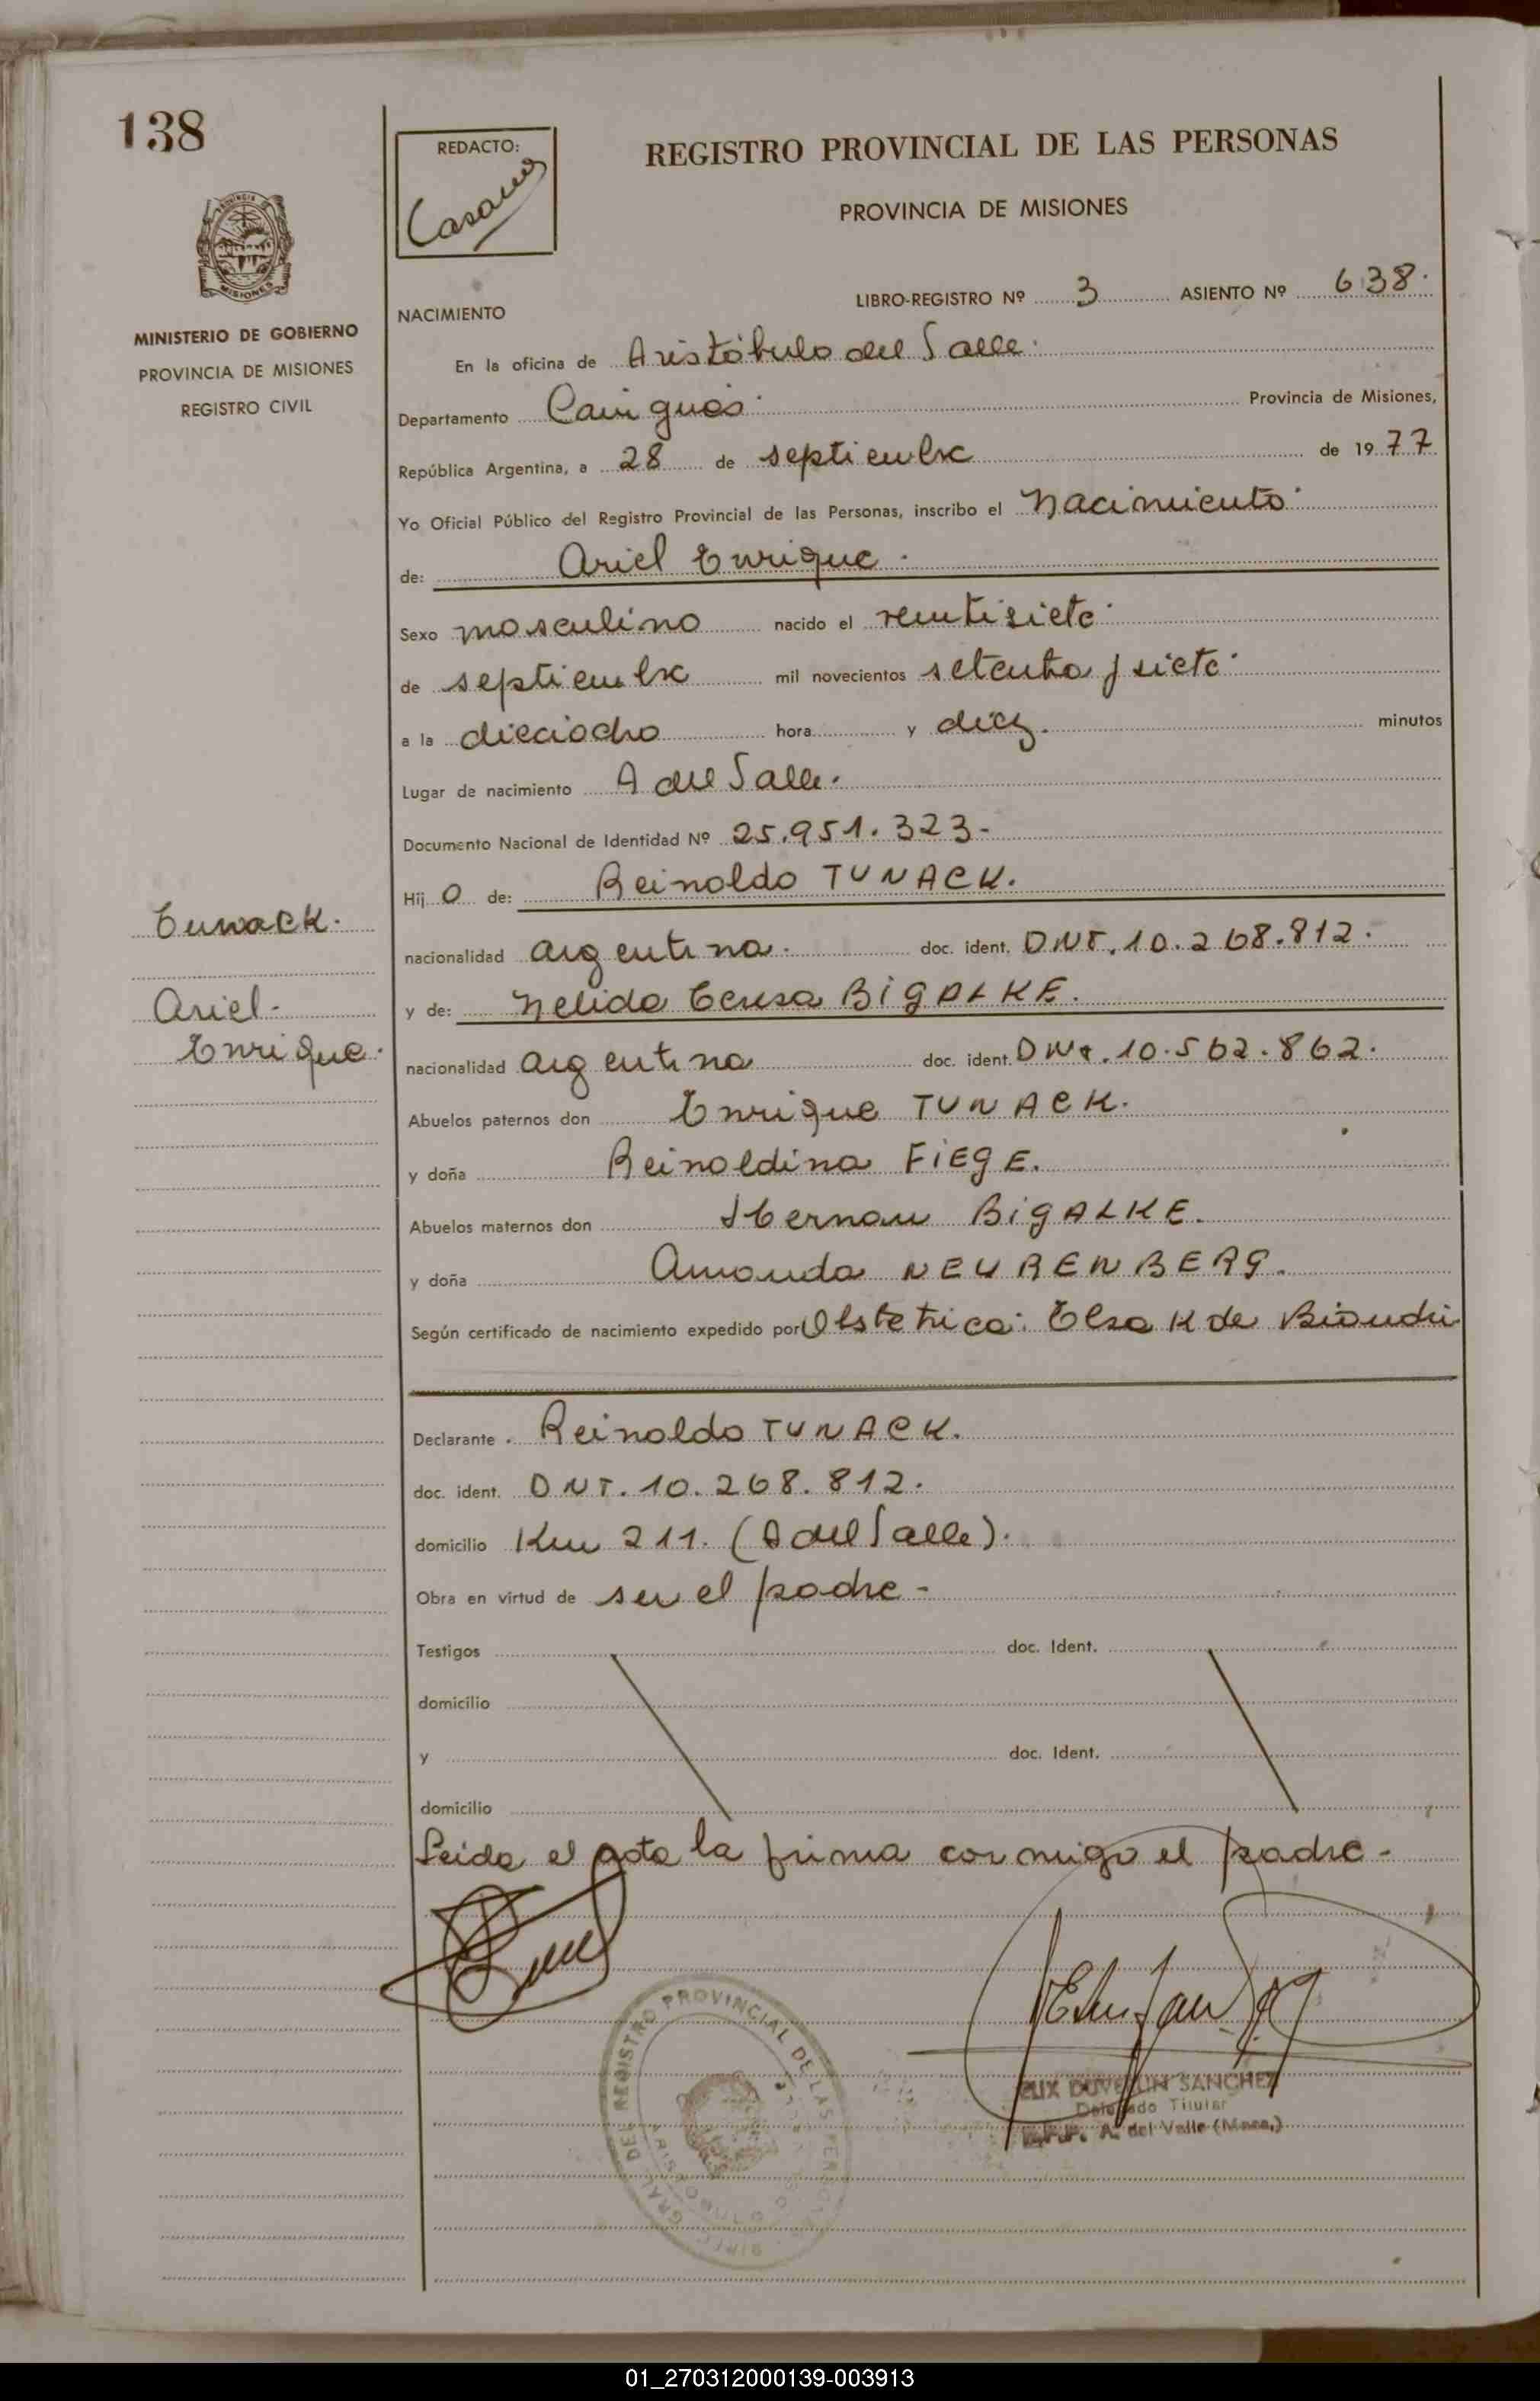 138
REDACTO:
Casano
REGISTRO PROVINCIAL DE LAS PERSONAS
PROVINCIA DE MISIONES
MINISTERIO DE GOBIERNO
PROVINCIA DE MISIONES
REGISTRO CIVIL
LIBRO-REGISTRO Nº 3 ASIENTO Nº 638.
NACIMIENTO
En la oficina de Aristóbulo del Valle.
Departamento Cainguás. Provincia de Misiones,
República Argentina, a 28 de septiembre de 1977
Yo Oficial Público del Registro Provincial de las Personas, inscribo el Nacimiento.
de: Ariel Enrique.
Sexo masculino nacido el veintisiete.
de septiembre mil novecientos setenta y siete.
a la dieciocho hora y diez. minutos
Lugar de nacimiento A del Valle.
Documento Nacional de Identidad Nº 25.951.323-
Hijo de: Reinoldo TUNACK.
nacionalidad argentina. doc. ident. DNI.10.268.812.
y de: Nelida Teresa BIGALKE.
nacionalidad argentina doc. ident. DNI.10.562.862.
Abuelos paternos don Enrique TUNACK.
y doña Reinoldina FIEGE.
Abuelos maternos don Hernan BIGALKE.
y doña Amanda NEURENBERG.
Según certificado de nacimiento expedido por Obstetrica: Elsa K de Biondi
Tunack.
Ariel-
Enrique.
Declarante . Reinoldo TUNACK.
doc. ident. DNI.10.268.812.
domicilio Km 211. (A del Valle).
Obra en virtud de ser el padre-
Testigos doc. Ident.
domicilio
y doc. Ident.
domicilio
Leida el acta la firma conmigo el padre-
DUVERLIN SANCHEZ
Delegado Titular
R.P.P. A. del Valle (Mnes.)
01_270312000139-003913